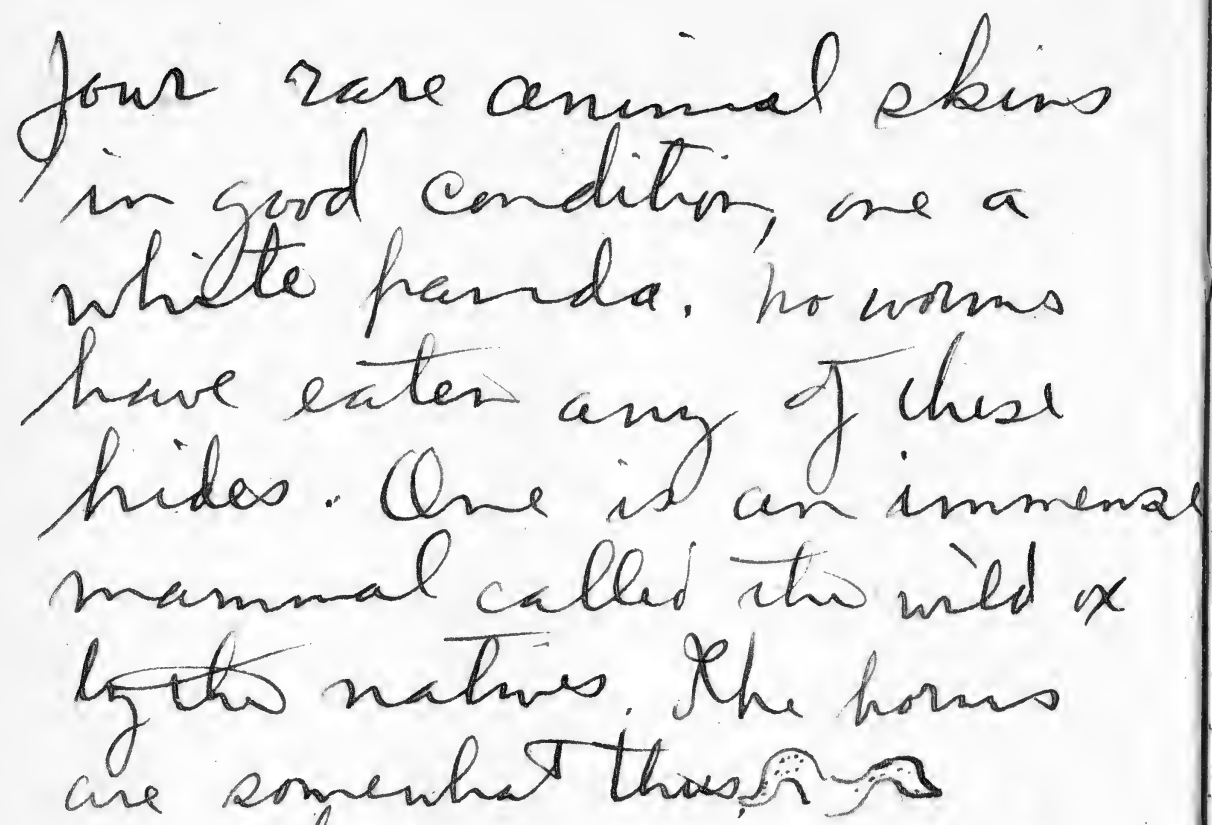 four rare animal skins
in good condition, one a
white panda. no worms
have eaten any of these
hides. One is an immense
mammal called the wild ox
by the natives. The horns
are somewhat thus,